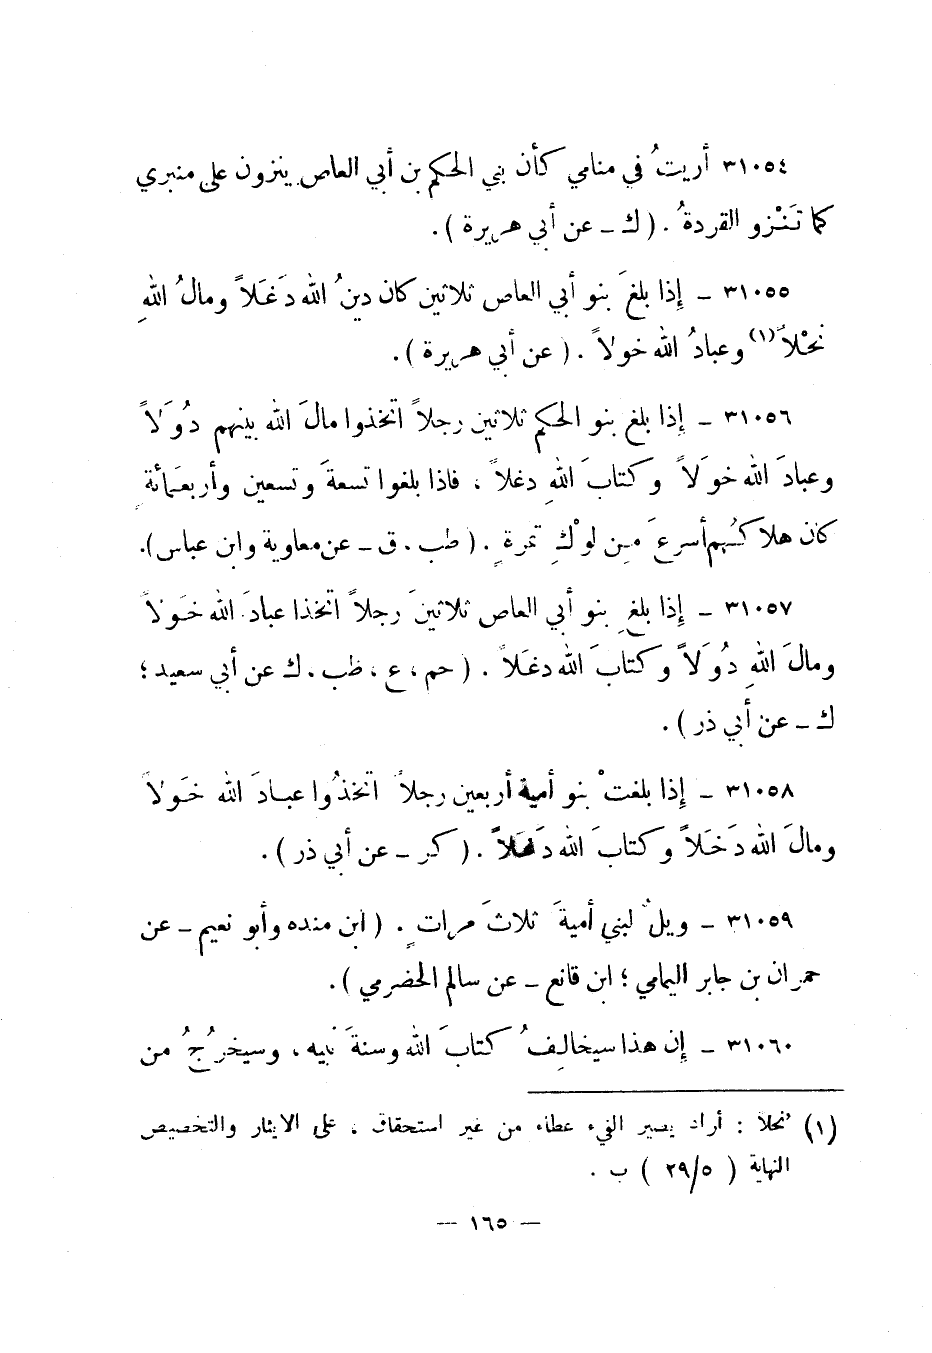 ٣١٠٥٤ أريتُ في منامي كأن بني الحكم بن أبي العاص ينزون على منبري
كما تَنْزو القردةُ . ( ك ــ عن أبي هريرة ) .
٣١٠٥٥ ــ إذا بلغَ بنو أبي العاص ثلاثين كان دينُ الله دَغَلاً ومالُ اللهِ
نحْلاً(١) وعبادُ الله خولاً . ( عن أبي هريرة ) .
٣١٠٥٦ ــ إذا بلغ بنو الحكم ثلاثين رجلاً اتخذوا مالَ الله بينهم دُوَلاً
وعبادَ الله خوَلاً وكتابَ اللهِ دغلاً ، فاذا بلغوا تسعةَ وتسعين وأربعَمائةِ
كان هلاكُهم أسرعَ مِن لوْكِ تمرةٍ . ( طب . ق ــ عن معاوية وابن عباس ).
٣١٠٥٧ ــ إذا بلغ بنو أبي العاص ثلاثينَ رجلاً اتخذا عبادَ الله خَولاً
ومالَ اللهِ دُوَلاً وكتابَ الله دغَلاً . ( حم ، ع ، طب . ك عن أبي سعيد ؛
ك ــ عن أبي ذر ) .
٣١٠٥٨ ــ إذا بلغتْ بنو أمية أربعين رجلاً اتخذُوا عبادَ الله خَولاً
ومالَ الله دَخَلاً وكتابَ الله دَغَلاً . ( كر ــ عن أبي ذر ) .
٣١٠٥٩ ــ ويلٌ لبني أميةَ ثلاثَ مراتٍ . ( ابن منده وأبو نعيم ــ عن
حمران بن جابر اليمامي ؛ ابن قانع ــ عن سالم الحضرمي ) .
٣١٠٦٠ ــ إن هذا سيخالِفُ كتابَ الله وسنةَ نبيه ، وسيخرُجُ من
(١) نحلا : أراد يصير الفيء عطاء من غير استحقاق ، على الايثار والتخصيص
النهاية ( ٢٩/٥ ) ب .
— ١٦٥ —